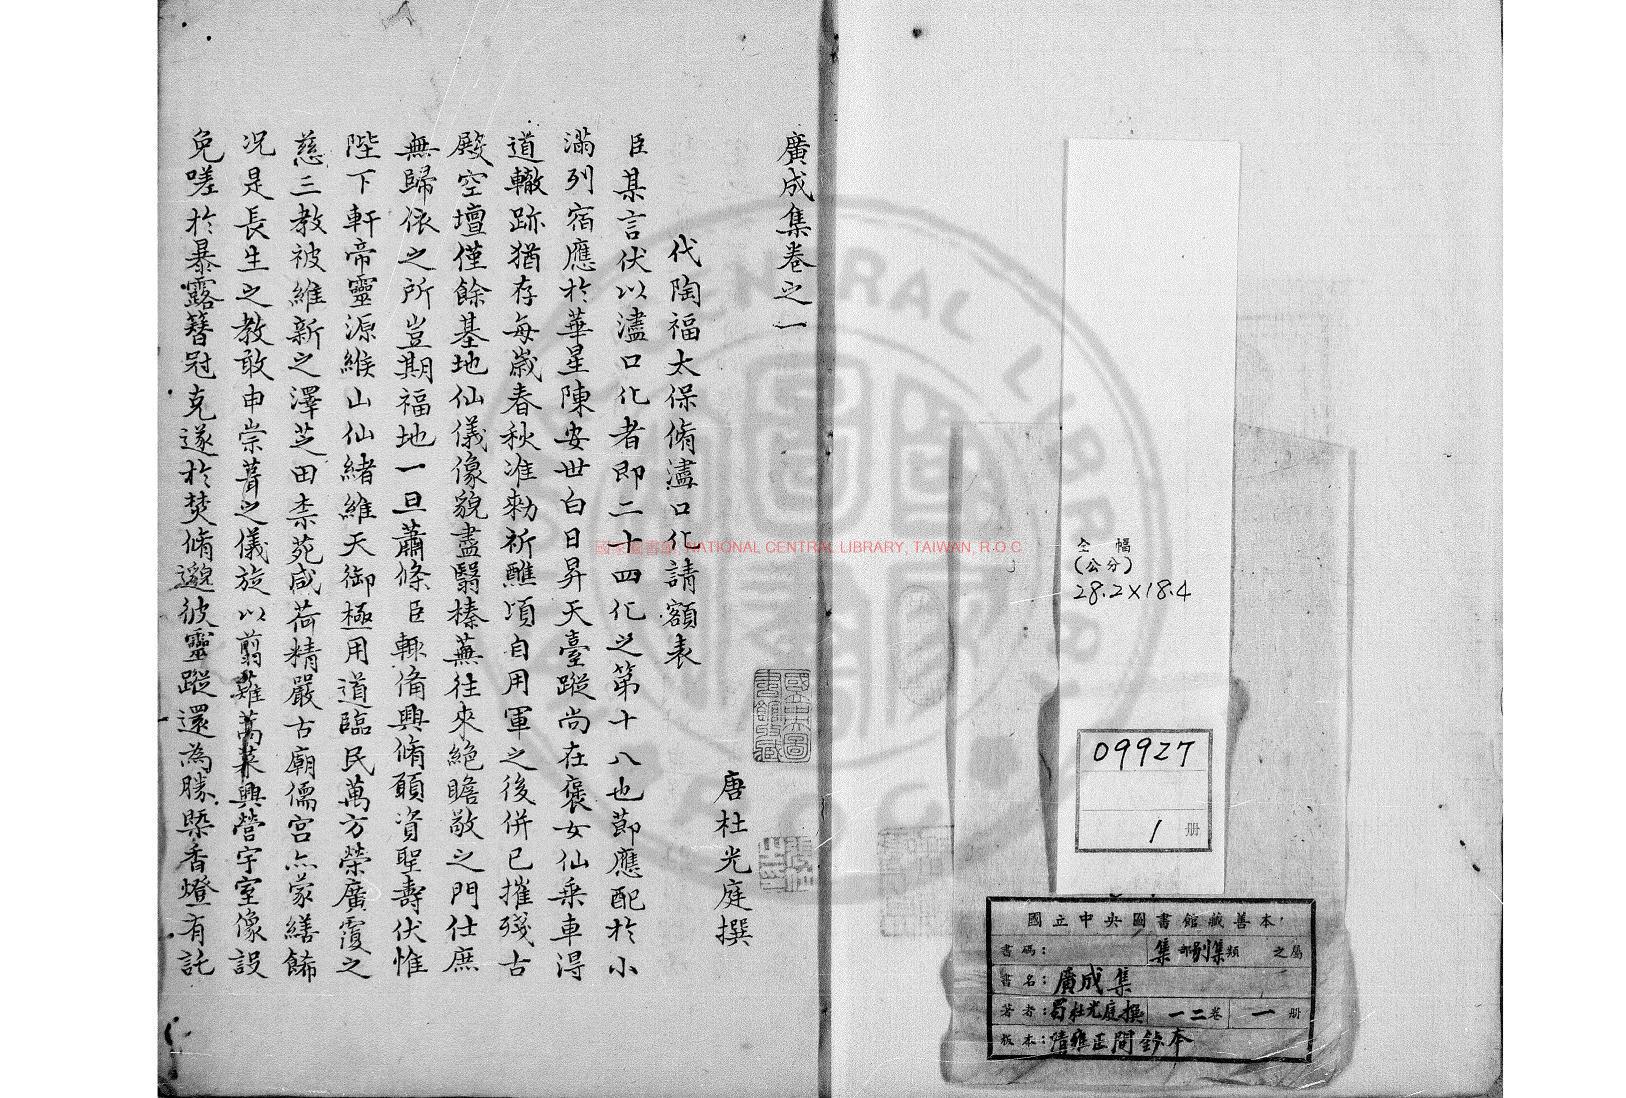 廣成集卷之一
唐杜光庭撰
代陶福太保脩濜口化請額表
臣某言伏以濜口化者即二十四化之第十八也節應配於小
滿列宿應於華星陳安世白日昇天臺蹤尚在褒女仙乘車得
道轍跡猶存每歲春秋准勑祈醮頃自用軍之後併已摧殘古
殿空壇僅餘基地仙儀像貌盡翳榛蕪往來絶瞻敬之門仕庶
無歸依之所豈期福地一旦蕭條臣輒俻興脩願資聖壽伏惟
陛下軒帝靈源緱山仙緒維天御極用道臨民萬方榮廣覆之
慈三教被維新之澤芝田柰苑咸荷精嚴古廟儒宫亦蒙繕餙
况是長生之教敢申崇葺之儀旋以翦薙蒿萊興營宇室像設
免嗟於暴露簪冠克遂於焚脩邈彼靈蹤還為勝槩香燈有託
國立中央圖書館收藏
國家圖書館, NATIONAL CENTRAL LIBRARY, TAIWAN, R.O.C
全幅
(公分)
28.2×18.4
09927
1 册
國立中央圖書館藏善本
書碼: 集部別集類之屬
書名: 廣成集
著者: 蜀杜光庭撰 一二卷 一册
版本: 清雍正間鈔本